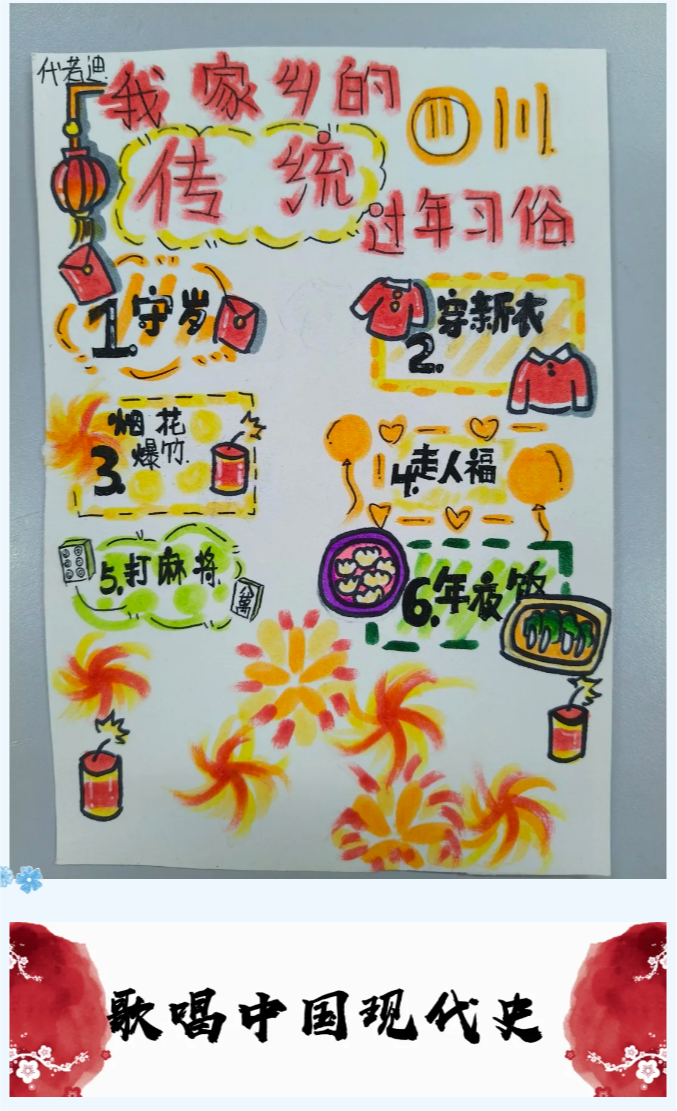 代若迪
我家乡的
四川
传统
过年习俗
1.守岁
穿新衣
2.
烟花
爆竹
3.
4.走人福
5.打麻将
八萬
6.年夜饭
歌唱中国现代史